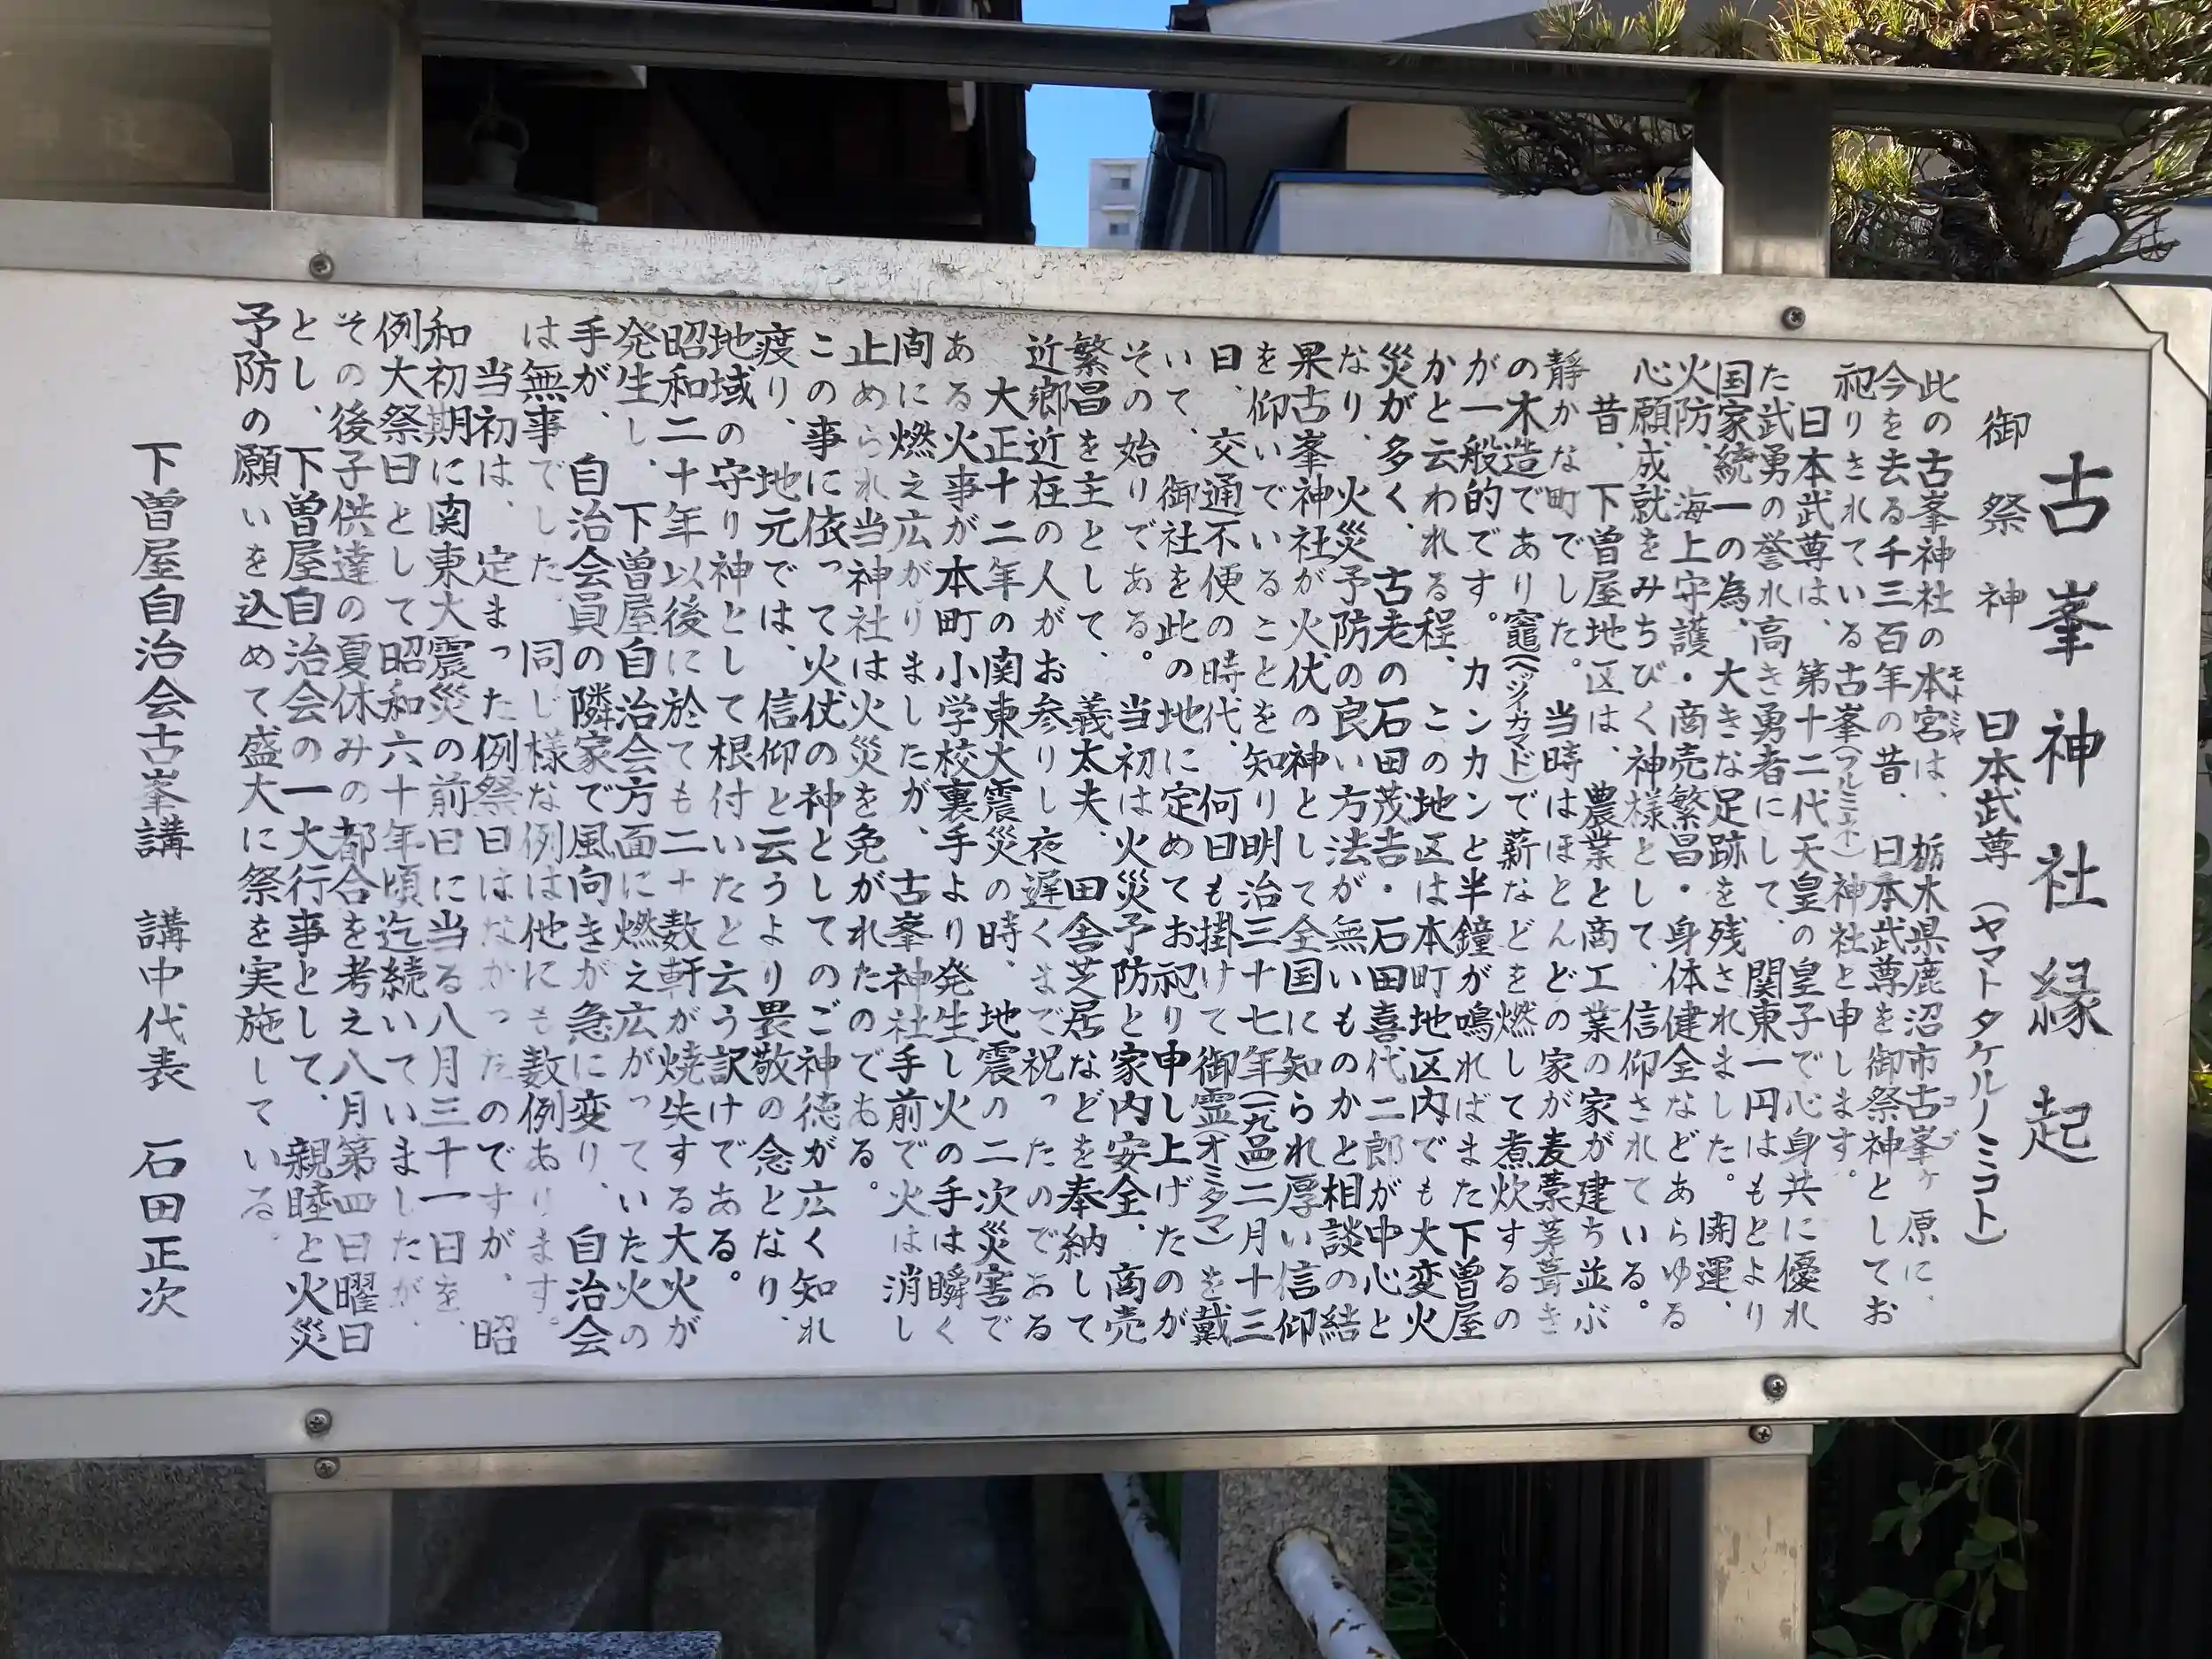 古峯神社縁起
御祭神　日本武尊（ヤマトタケルノミコト）
此の古峯神社の本宮は、栃木県鹿沼市古峯ヶ原に、
今を去る千三百年の昔、日本武尊を御祭神としてお
祀りされている古峯（フルミネ）神社と申します。
日本武尊は、第十二代天皇の皇子で心身共に優れ
た武勇の誉れ高き勇者にして、関東一円はもとより
国家統一の為、大きな足跡を残されました。開運、
火防、海上守護・商売繁昌・身体健全などあらゆる
心願成就をみちびく神様として、信仰されている。
昔、下曽屋地区は、農業と商工業の家が建ち並ぶ
静かな町でした。当時はほとんどの家が麦藁茅葺き
の木造であり竈（ヘッツイ・カマド）で薪などを燃して煮炊するの
が一般的です。カンカンと半鐘が鳴ればまた下曽屋
かと云われる程、この地区は本町地区内でも大変火
災が多く、古老の石田茂吉・石田喜代二郎が中心と
なり、火災予防の良い方法が無いものかと相談の結
果古峯神社が火伏の神として全国に知られ厚い信仰
を仰いでいることを知り明治三十七年（一九〇四）二月十三
日、交通不便の時代、何日も掛けて御霊（オミタマ）を戴
いて、御社を此の地に定めてお祀り申し上げたのが
その始りである。当初は火災予防と家内安全、商売
繁昌を主として、義太夫、田舎芝居などを奉納して
近郷近在の人がお参りし夜遅くまで祝ったのである
大正十二年の関東大震災の時、地震の二次災害で
ある火事が本町小学校裏手より発生し火の手は瞬く
間に燃え広がりましたが、古峯神社手前で火は消し
止められ当神社は火災を免がれたのである。
この事に依って火伏の神としてのご神徳が広く知れ
渡り、地元では、信仰と云うより畏敬の念となり、
地域の守り神として根付いたと云う訳けである。
昭和二十年以後に於ても二十数軒が焼失する大火が
発生し、下曽屋自治会方面に燃え広がっていた火の
手が、自治会員の隣家で風向きが急に変り、自治会
は無事でした。同じ様な例は他にも数例あります。
当初は、定まった例祭日はなかったのですが、昭
和初期に関東大震災の前日に当る八月三十一日を、
例大祭日として昭和六十年頃迄続いていましたが、
その後子供達の夏休みの都合を考え八月第四日曜日
とし、下曽屋自治会の一大行事として、親睦と火災
予防の願いを込めて盛大に祭を実施している。
下曽屋自治会古峯講　講中代表　石田正次